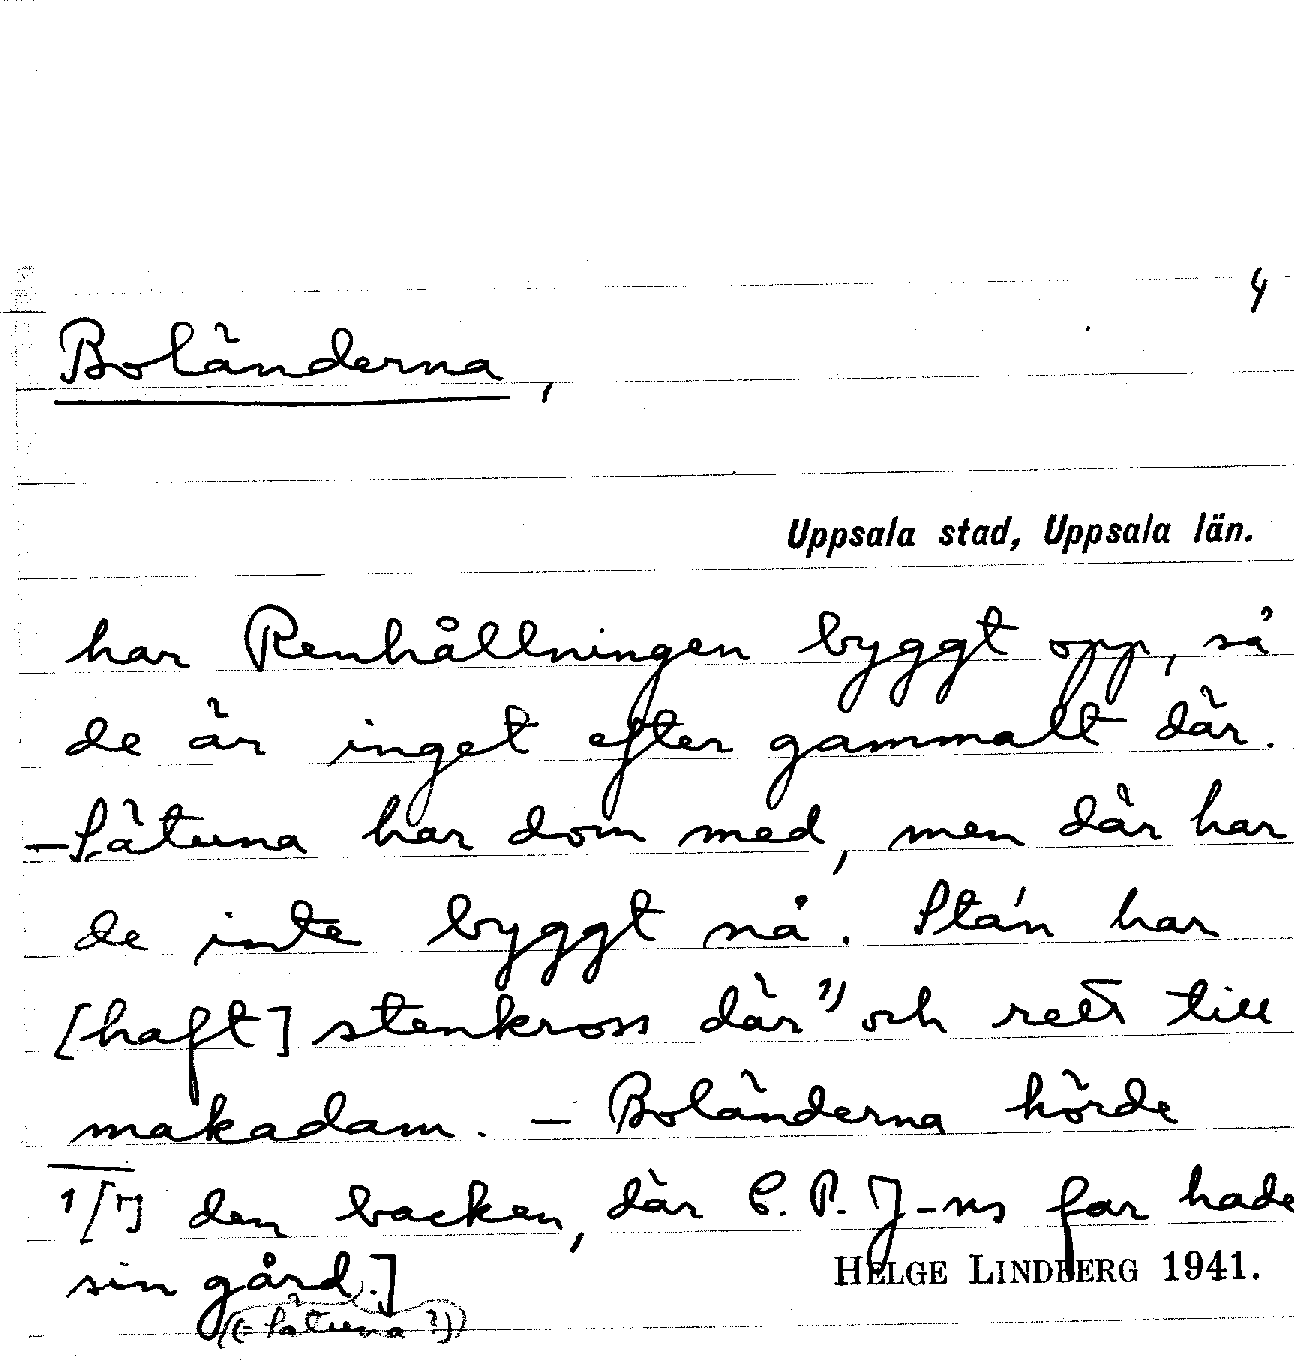 4
Boländerna,
Uppsala stad, Uppsala län.
har Renhållningen byggt opp, så
de är inget efter gammalt där.
– Såtuna har dom med, men där har
de inte byggt nå. Sta'n har
[haft] stenkross där 1) och rett till
makadam. – Boländerna hörde
1/[¨] den backen, där C. P. J-ns far hade
sin gård.]
((= Såtuna?))
HELGE LINDBERG 1941.